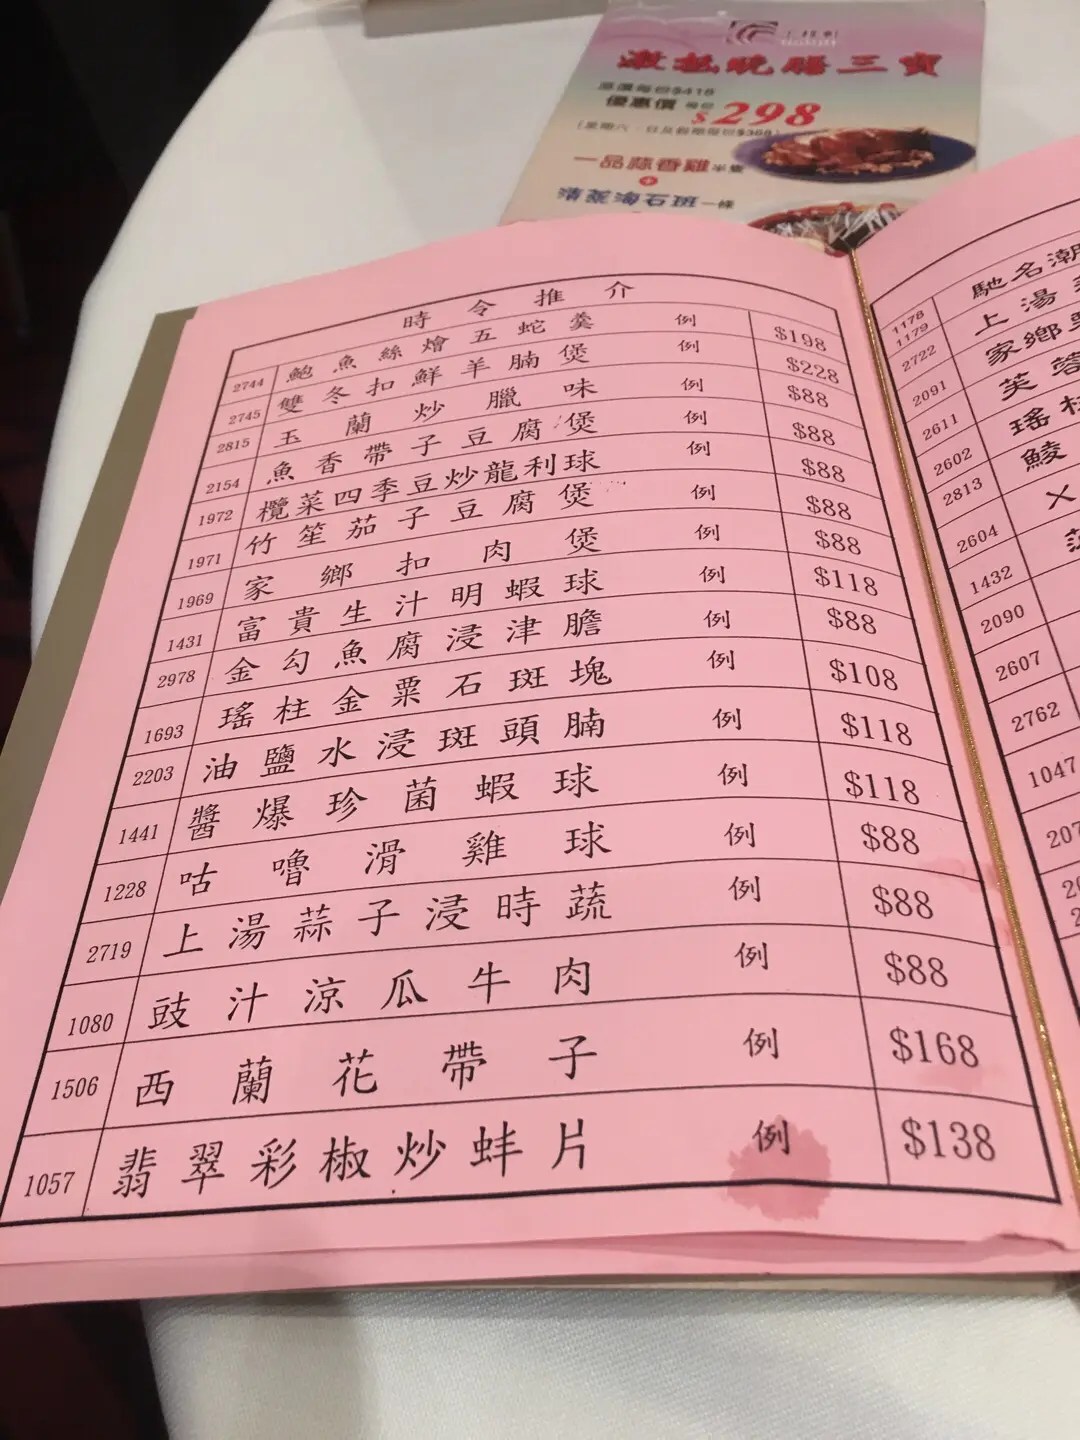 激抵晚膳三寶
原價每份$418
優惠價 每份 $298
(星期六、日及假期每份$368)
一品蒜香雞半隻
+
清蒸海石斑一條
時令推介
2744 鮑魚絲燴五蛇羹 例 $198
2745 雙冬扣鮮羊腩煲 例 $228
2815 玉蘭炒臘味 例 $88
2154 魚香帶子豆腐煲 例 $88
1972 欖菜四季豆炒龍利球 例 $88
1971 竹笙茄子豆腐煲 例 $88
1969 家鄉扣肉煲 例 $88
1431 富貴生汁明蝦球 例 $118
2978 金勾魚腐浸津膽 例 $88
1693 瑤柱金粟石斑塊 例 $108
2203 油鹽水浸斑頭腩 例 $118
1441 醬爆珍菌蝦球 例 $118
1228 咕嚕滑雞球 例 $88
2719 上湯蒜子浸時蔬 例 $88
1080 豉汁涼瓜牛肉 例 $88
1506 西蘭花帶子 例 $168
1057 翡翠彩椒炒蚌片 例 $138
1178 馳名潮
1179
2722 上湯
2091 家鄉
2611 芙蓉
2602 瑤柱
2813 鯪
2604
1432
2090
2607
2762
1047
207